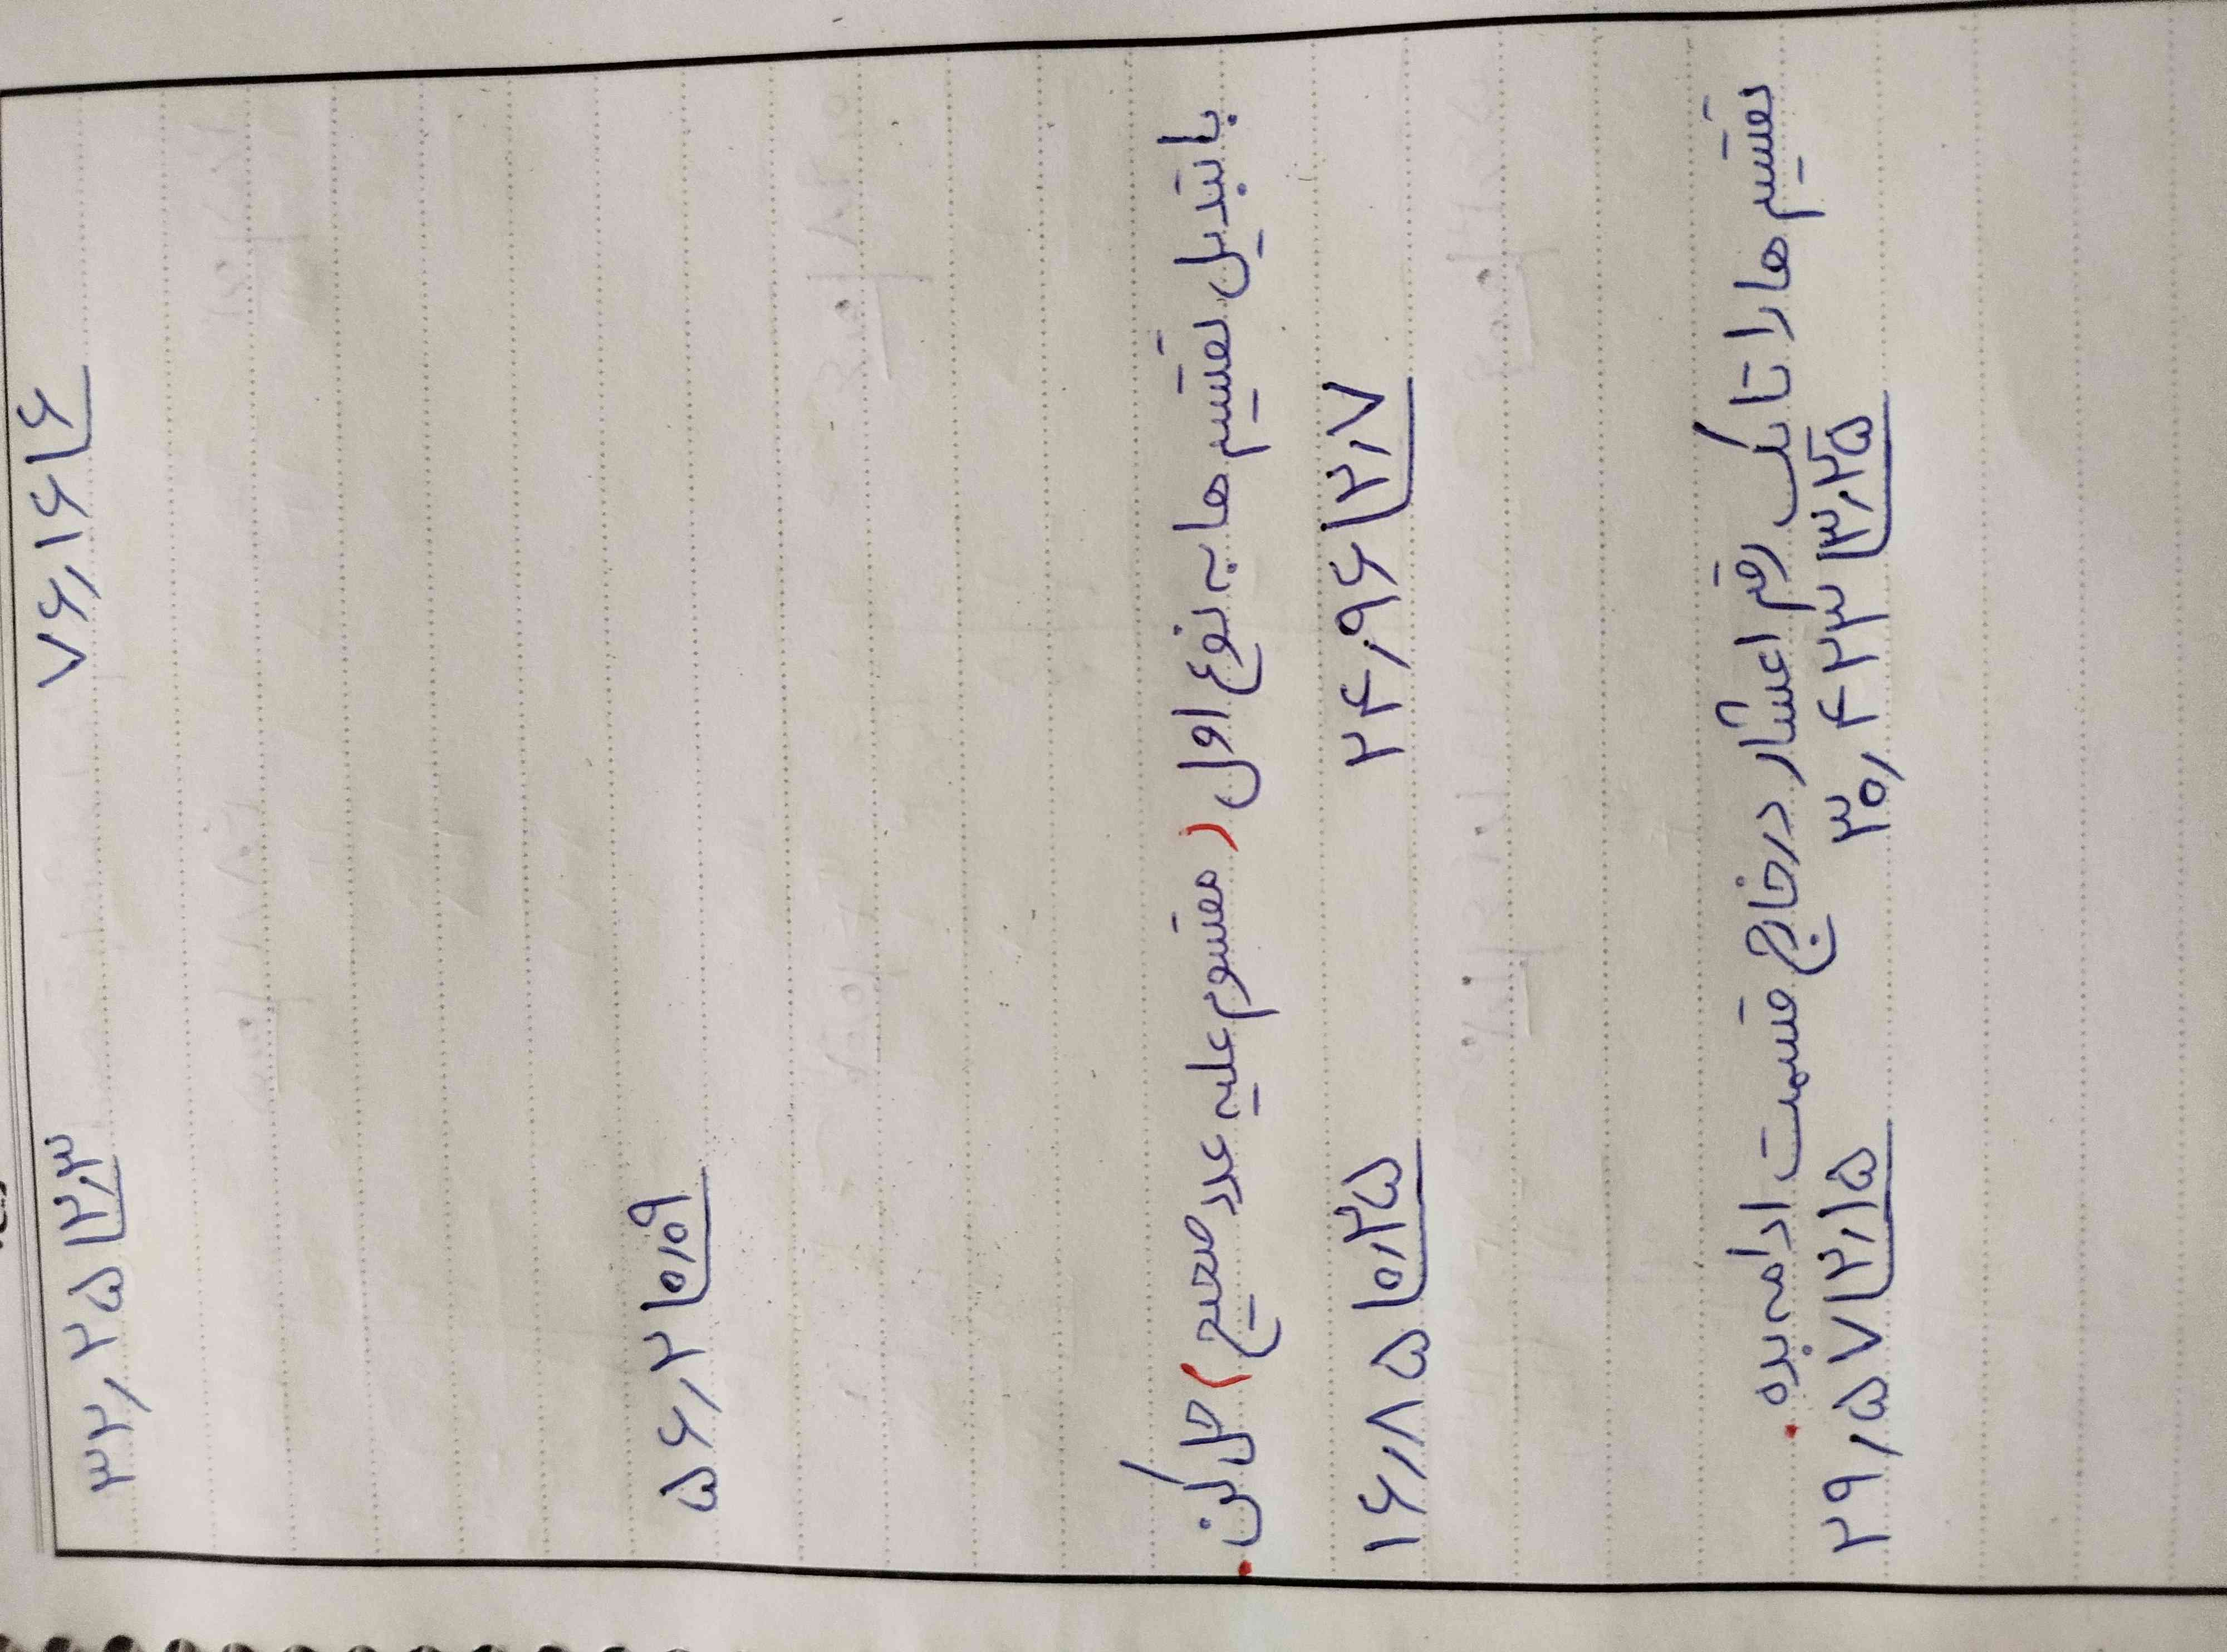 ۳۲٫۲۵ ۲٫۳ ۷۶٫۱۶ ۶
۵۶٫۲ ۰٫۰۹
با تبدیل تقسیم ها به نوع اول (مقسوم علیه عدد صحیح) حل کن.
۱۶٫۸۵ ۰٫۲۵ ۲۴٫۹۶ ۲٫۷
تقسیم ها را تا یک رقم اعشار در خارج قسمت ادامه بده.
۲۹٫۵۷ ۲٫۱۵ ۳۰٫۴۲۳ ۳٫۲۵